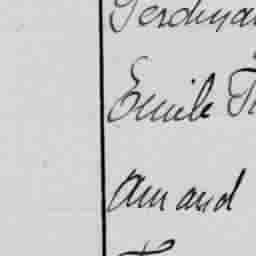 Ferdinan
Emile
Amand